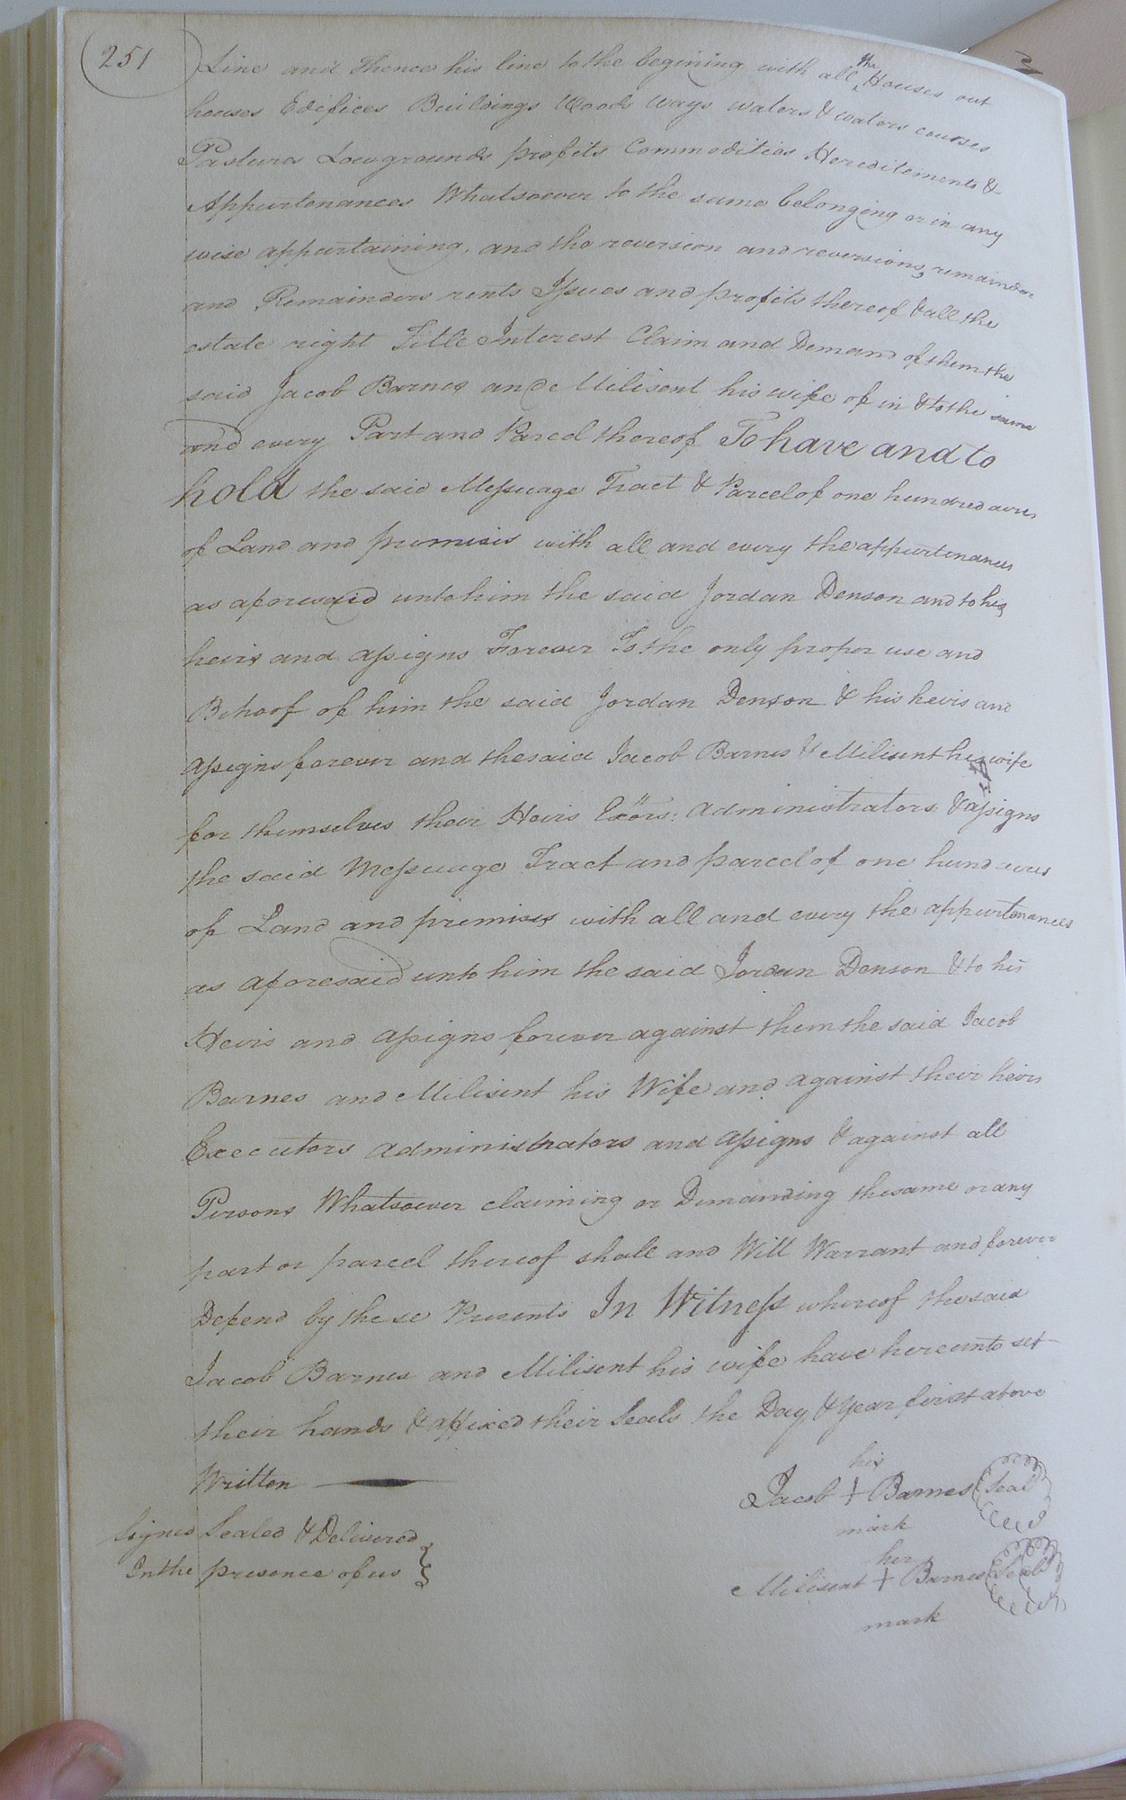 251
Line and thence his line to the begining with all the Houses out
houses Edifices Buildings Woods ways waters & waters courses
Pasturs Lowgrounds profits Commodities Hereditements &
Appurtenances Whatsoever to the same belonging or in any
wise appurtaining, and the reversion and reversions, remainder
and Remainders rents Issues and profits thereof & all the
estate right Title Interest Claim and Demand of them the
said Jacob Barnes and Milisent his wife of in & to the same
and every Part and Parcel thereof To have and to
hold the said Messuage Tract & Parcel of one hundred acres
of Land and premisis with all and every the appurtenances
as aforesaid unto him the said Jordan Denson and to his
heirs and assigns Forever To the only proper use and
Behoof of him the said Jordan Denson & his heirs and
assigns forever and the said Jacob Barnes & Milisent his wife
for themselves their Heirs Exors: administrators & assigns
the said Messuage Tract and parcel of one hund acres
of Land and premises with all and every the appurtenances
as aforesaid unto him the said Jordan Denson & to his
Heirs and assigns forever against them the said Jacob
Barnes and Milisent his Wife and against their heirs
Executors administrators and assigns & against all
Persons Whatsoever claiming or Demanding the same or any
part or parcel thereof shall and Will Warrant and forever
Defend by these Presents In Witness whereof the said
Jacob Barnes and Milisent his wife have hereunto set
their hands & affixed their Seals the Day & Year first above
Written
his
Jacob + Barnes Seal
mark
Signed Sealed & Delivered
In the presence of us
her
Milisent + Barnes Seal
mark